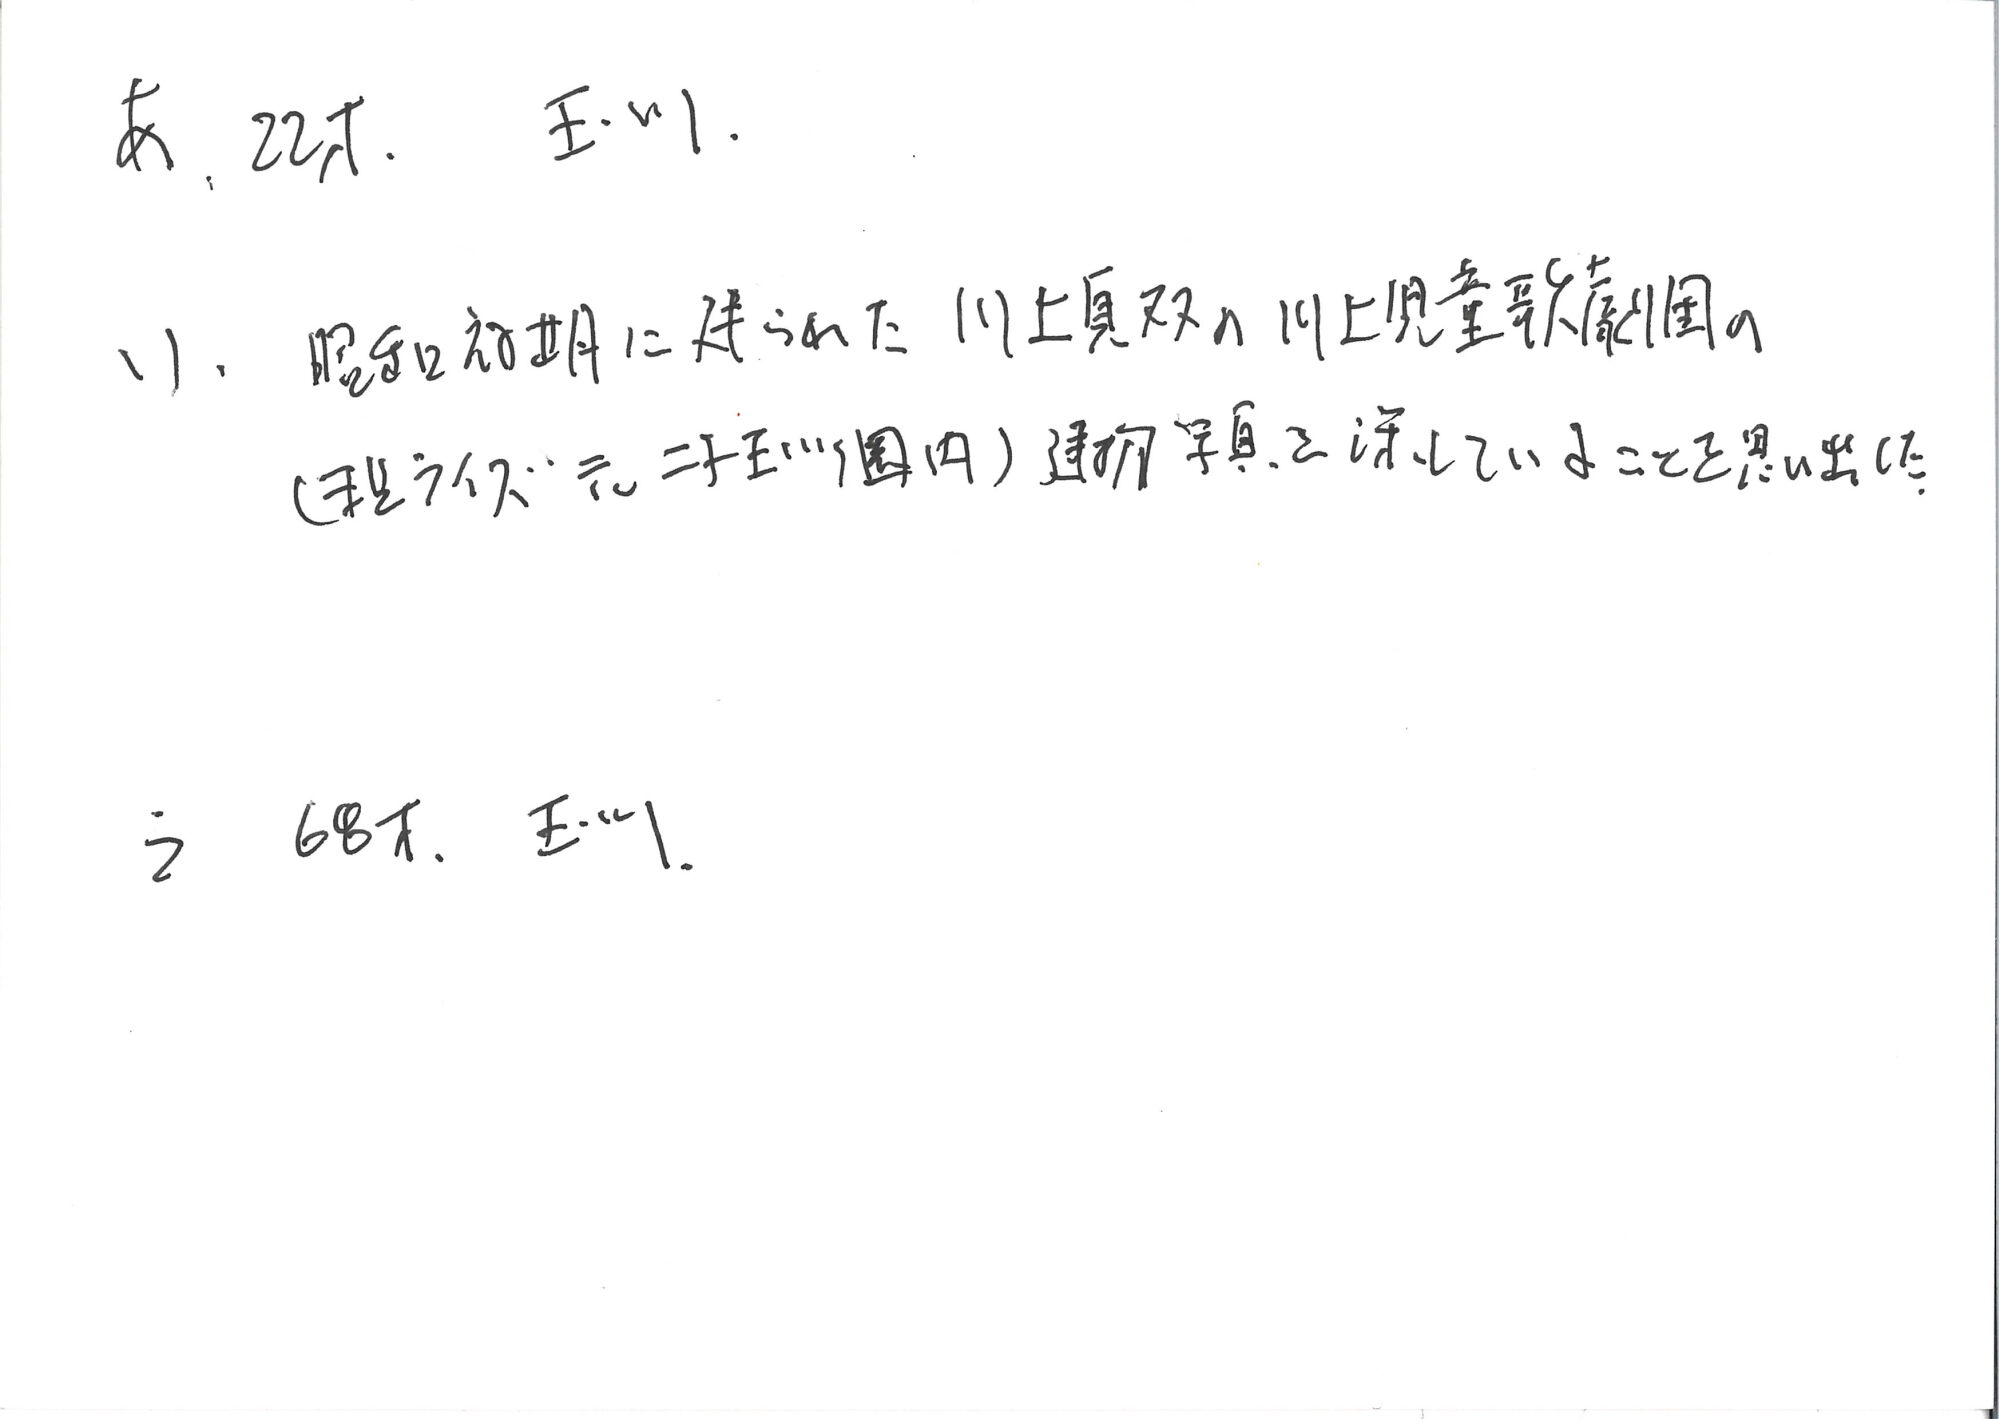 あ、22才. 玉川.
い、昭和初期に建られた川上貞奴の川上児童歌劇団の
(現ライズ 元二子玉川園内)建物写真を探していることを思い出した.
う 68才. 玉川.